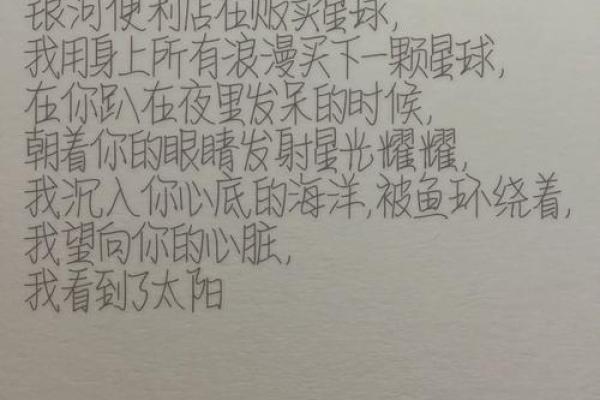 银河便利店在贩卖星球,
我用身上所有浪漫买下一颗星球,
在你趴在夜里发呆的时候,
朝着你的眼睛发射星光耀耀,
我沉入你心底的海洋,被鱼环绕着,
我望向你的心脏,
我看到了太阳